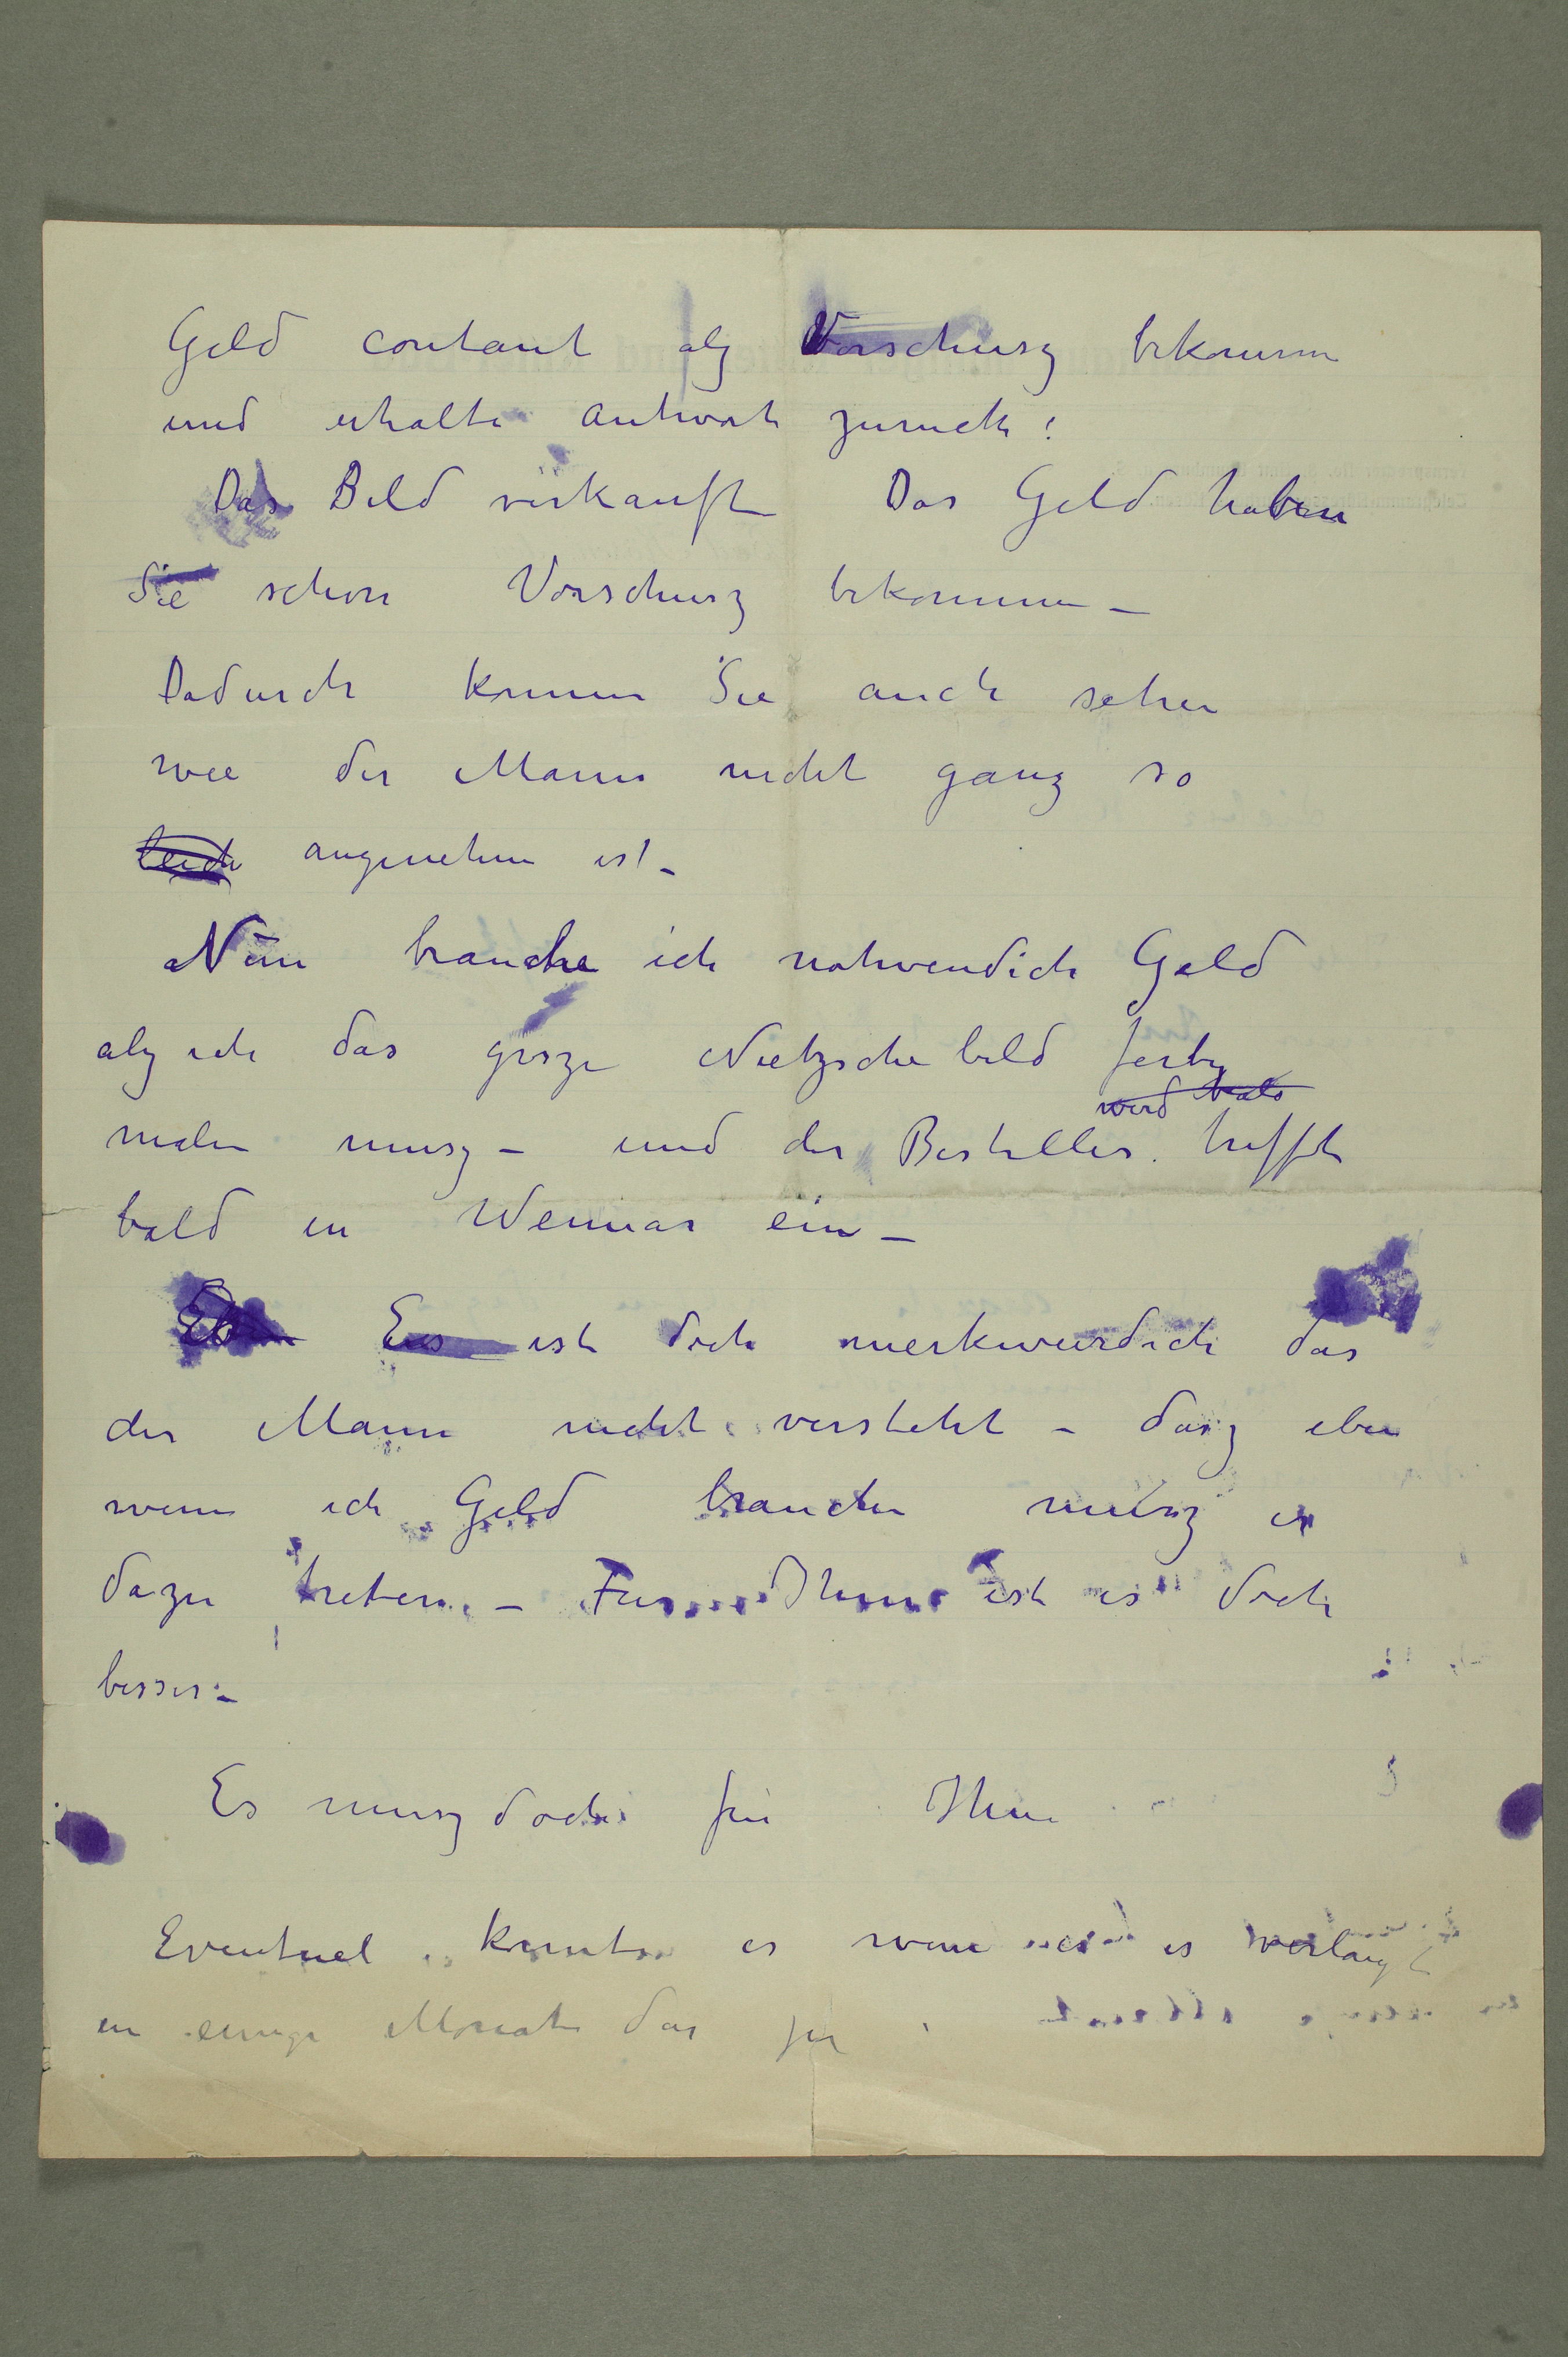 Geld contant alz Vorschusz bekommen
und erhalte Antwort zuruck!
Das Bild verkauft Das Geld haben
Sie schon Vorschusz bekommen –
Dadurch konnen Sie auch sehen
wie der Mann nicht ganz so
leich angenehm ist –
Nun brauche ich nothwendich Geld
alz ich das grosze Nietzsche bild fertig
wird bald
malen musz – und der Besteller trefft
bald in Weimar ein –
Es ist doch merkwurdich das
der Mann nicht versteht – dasz eben
wenn ich Geld brauche musz er
dazu treten – Fur Ihm ist es doch
besser –
Es musz doch fur Ihm
Eventuel konnte er wenn er es verlangt
in einige Monate das